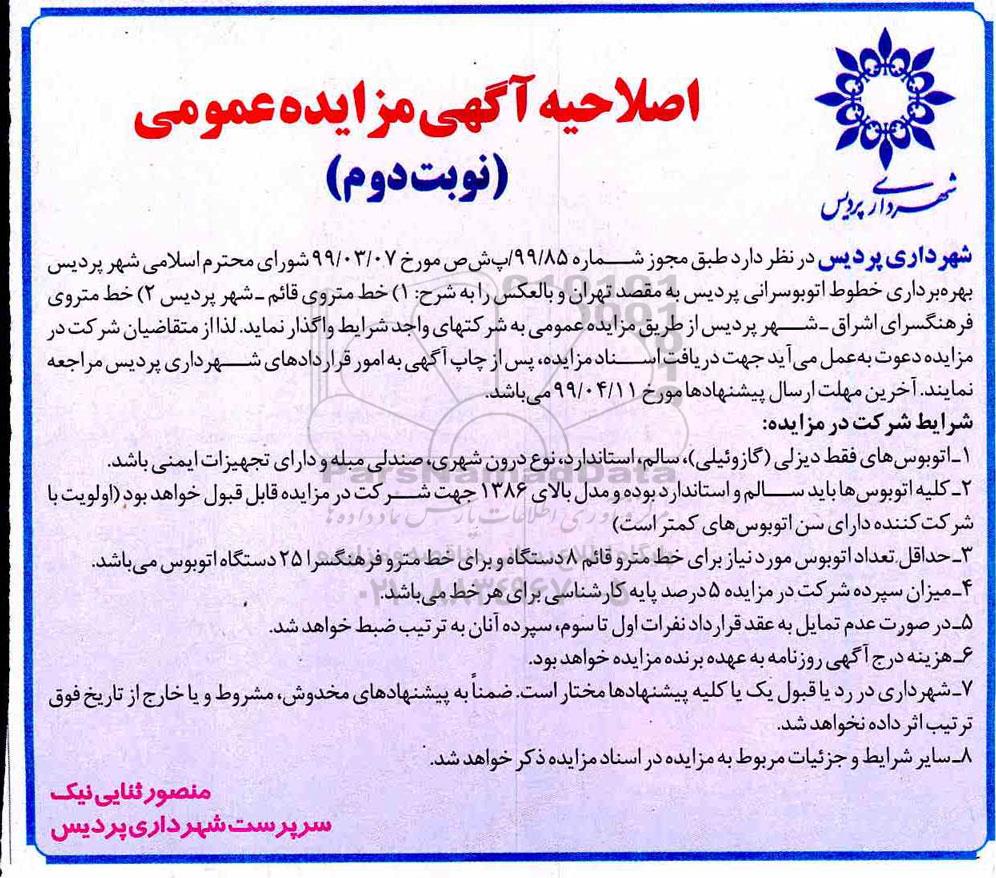 اصلاحیه آگهی مزایده عمومی
(نوبت دوم)
شهرداری پردیس
شهرداری پردیس در نظر دارد طبق مجوز شماره ۹۹/۸۵/پ ش ص مورخ ۹۹/۰۳/۰۷ شورای محترم اسلامی شهر پردیس
بهره‌برداری خطوط اتوبوسرانی پردیس به مقصد تهران و بالعکس را به شرح: ۱) خط متروی قائم ـ شهر پردیس ۲) خط متروی
فرهنگسرای اشراق ـ شهر پردیس از طریق مزایده عمومی به شرکتهای واجد شرایط واگذار نماید. لذا از متقاضیان شرکت در
مزایده دعوت به‌عمل می‌آید جهت دریافت اسناد مزایده، پس از چاپ آگهی به امور قراردادهای شهرداری پردیس مراجعه
نمایند. آخرین مهلت ارسال پیشنهادها مورخ ۹۹/۰۴/۱۱ می‌باشد.
شرایط شرکت در مزایده:
۱ـ اتوبوس‌های فقط دیزلی (گازوئیلی)، سالم، استاندارد، نوع درون شهری، صندلی مبله و دارای تجهیزات ایمنی باشد.
۲ـ کلیه اتوبوس‌ها باید سالم و استاندارد بوده و مدل بالای ۱۳۸۶ جهت شرکت در مزایده قابل قبول خواهد بود (اولویت با
شرکت‌کننده دارای سن اتوبوس‌های کمتر است)
۳ـ حداقل تعداد اتوبوس مورد نیاز برای خط مترو قائم ۸ دستگاه و برای خط مترو فرهنگسرا ۲۵ دستگاه اتوبوس می‌باشد.
۴ـ میزان سپرده شرکت در مزایده ۵ درصد پایه کارشناسی برای هر خط می‌باشد.
۵ـ در صورت عدم تمایل به عقد قرارداد نفرات اول تا سوم، سپرده آنان به ترتیب ضبط خواهد شد.
۶ـ هزینه درج آگهی روزنامه به عهده برنده مزایده خواهد بود.
۷ـ شهرداری در رد یا قبول یک یا کلیه پیشنهادها مختار است. ضمناً به پیشنهادهای مخدوش، مشروط و یا خارج از تاریخ فوق
ترتیب اثر داده نخواهد شد.
۸ـ سایر شرایط و جزئیات مربوط به مزایده در اسناد مزایده ذکر خواهد شد.
منصور ثنایی نیک
سرپرست شهرداری پردیس
ParsNamadData